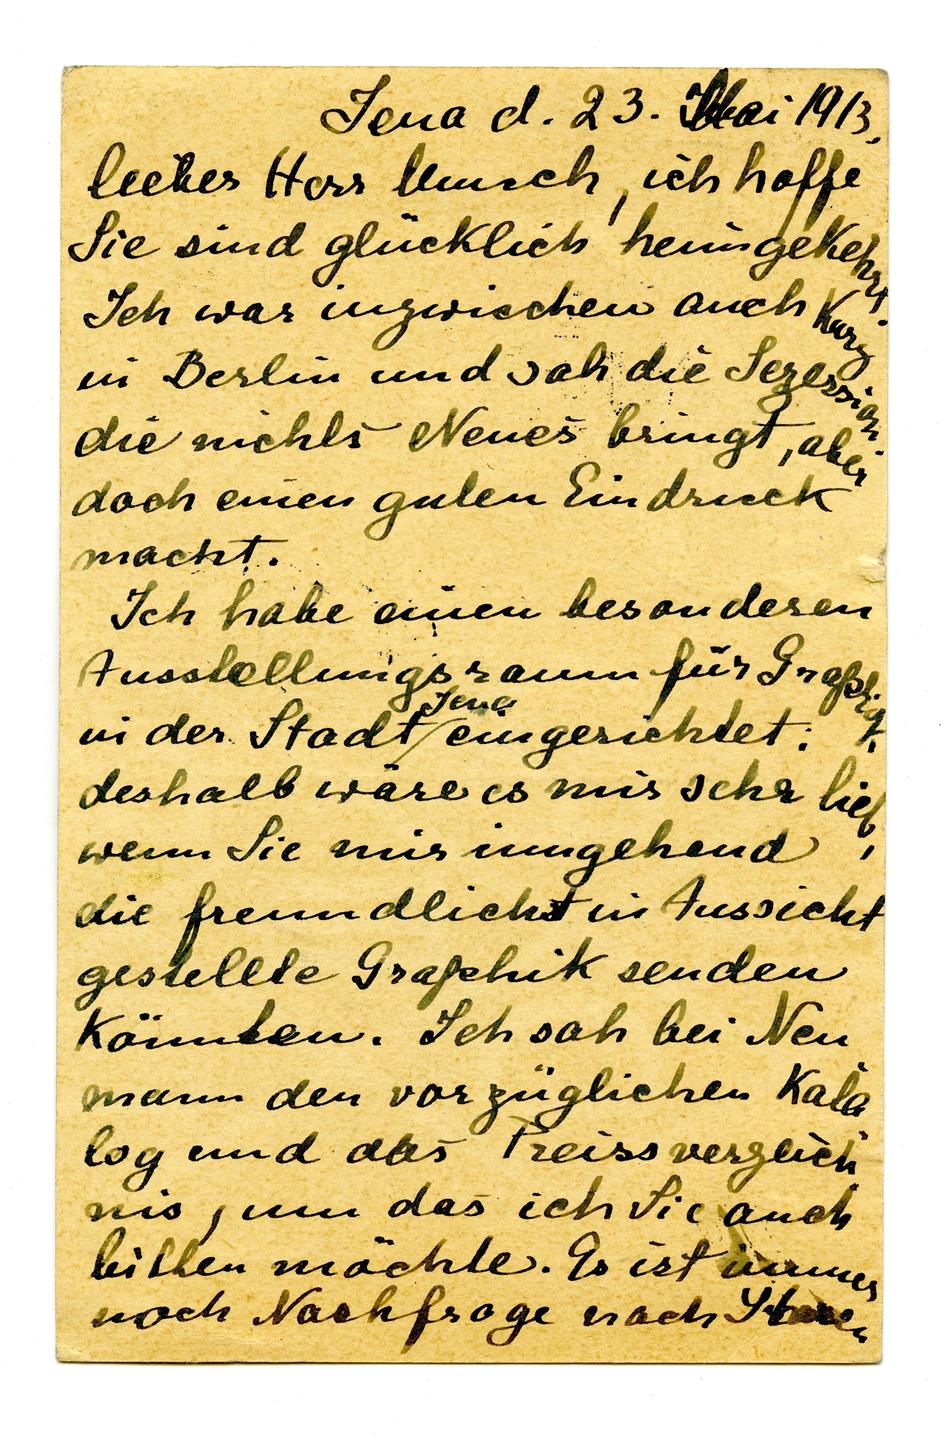 Jena d. 23. Mai 1913.
lieber Herr Munch, ich hoffe
Sie sind glücklich heimgekehrt.
Ich war inzwischen auch kurz
in Berlin und sah die Sezession
die nichts Neues bringt, aber
doch einen guten Eindruck
macht.
Ich habe einen besonderen
Ausstellungsraum für Graphik
in der Stadt Jena eingerichtet.
deshalb wäre es mir sehr lieb,
wenn Sie mir umgehend
die freundlichst in Aussicht
gestellte Graphik senden
könnten. Ich sah bei Neu
mann den vorzüglichen Kata
log und das Preissverzeich
nis, um das ich Sie auch
bitten möchte. Es ist immer
noch Nachfrage nach Ihren